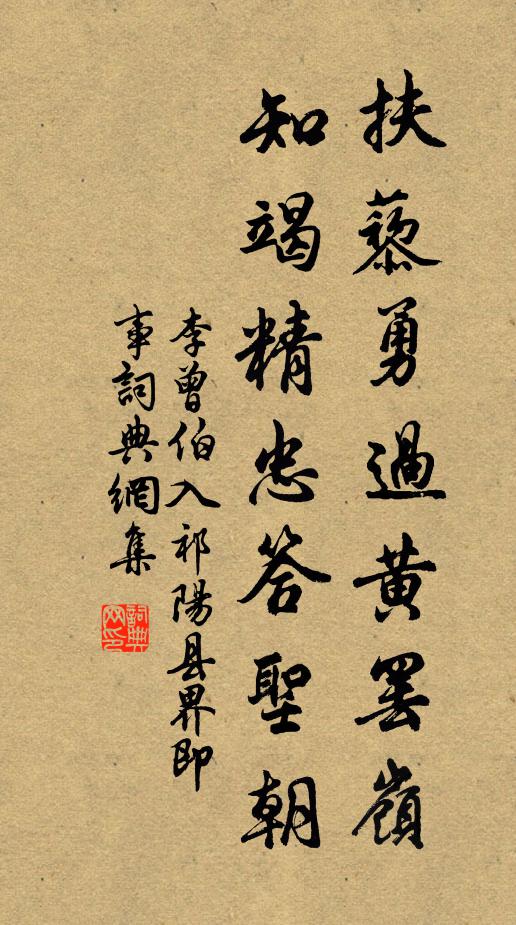 扶藜勇過黄罢嶺
知竭精忠答聖朝
李曾伯入祁陽县界即
事詞典網集
詞典
网印